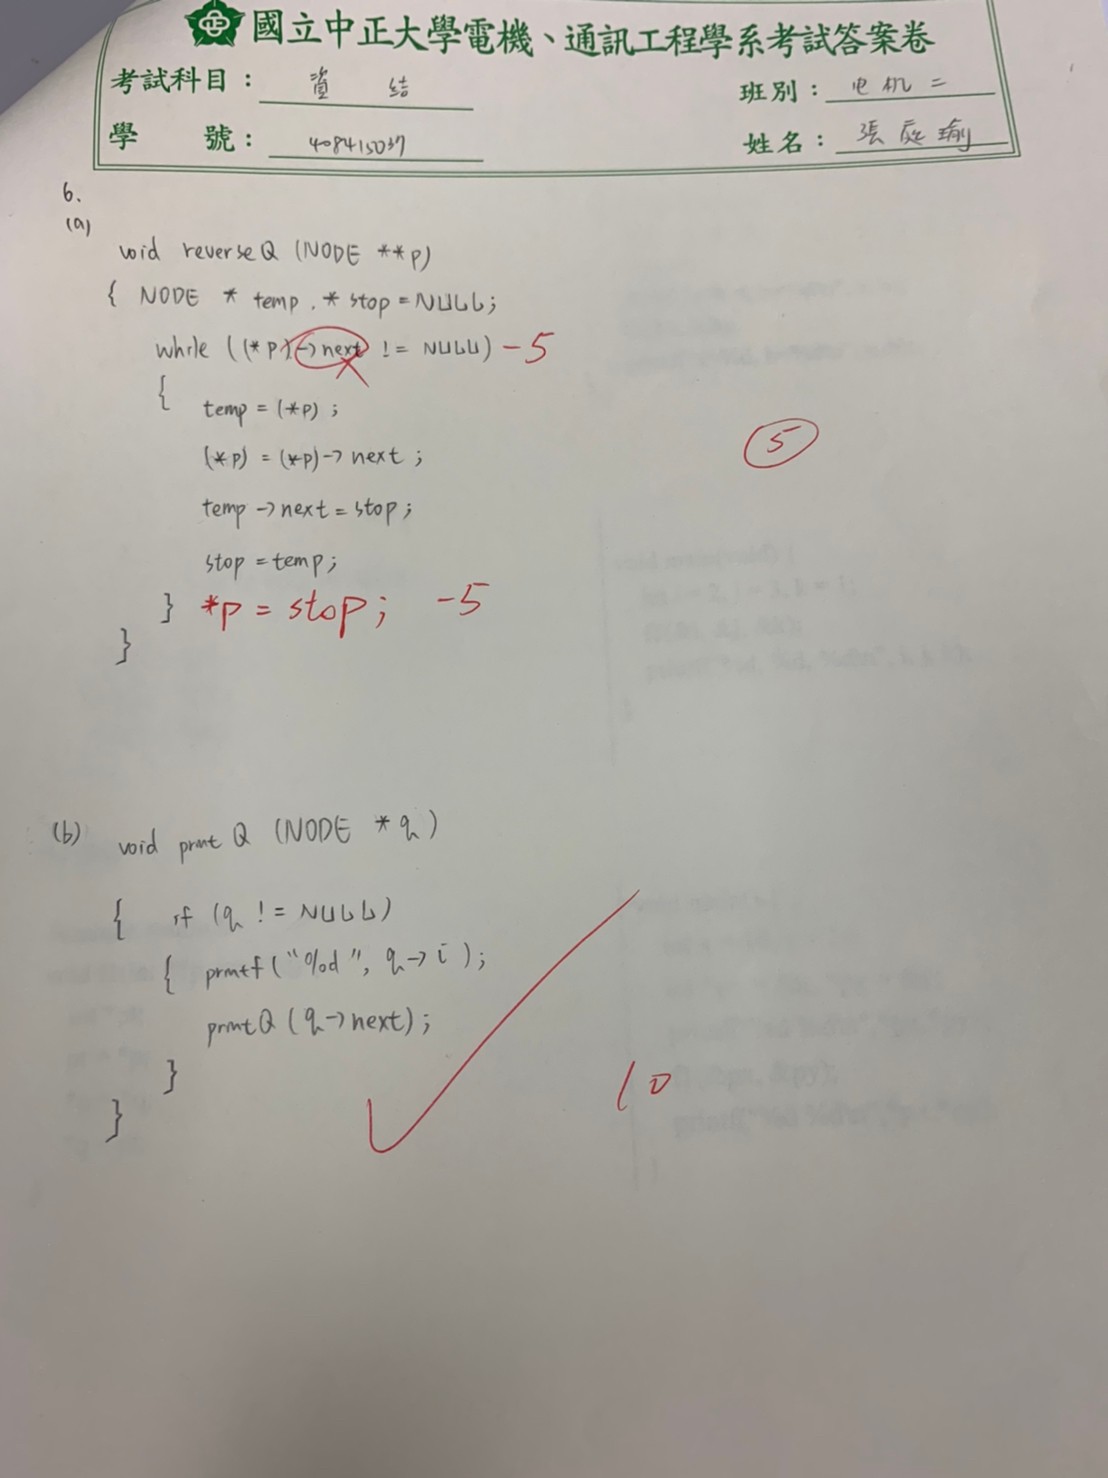 國立中正大學電機、通訊工程學系考試答案卷
考試科目： 資 結
班別： 电机二
學 號： 408415037
姓名： 張庭瑜
6.
(a)
void reverseQ (NODE **p)
{ NODE * temp, * stop = NULL;
while ((*p)->next != NULL) -5
{
temp = (*p);
(*p) = (*p)->next;
5
temp->next = stop;
stop = temp;
} *p = stop; -5
}
(b) void printQ (NODE *q)
{ if (q != NULL)
{ printf("%d", q->i);
printQ (q->next);
}
10
}